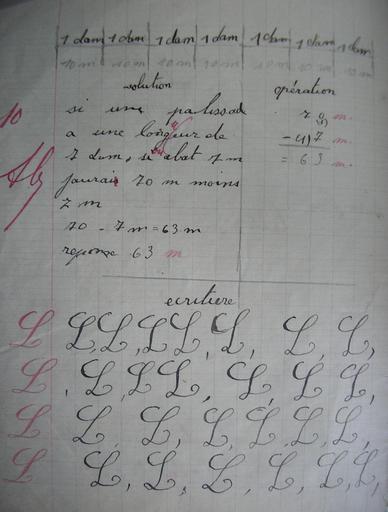 1 dam 1 dam 1 dam 1 dam 1 dam 1 dam 1 dam
10 m 10 m 10 m 10 m 10 m 10 m 10 m
solution
opération
10
si une palissade
a une longeur de
7 dam, si abat 7 m
jaurais 70 m moins
7 m
70 - 7 m = 63 m
reponse 63 m
70 m.
- (1)7 m.
= 63 m.
ecritiere
L L, L, L L, L, L, L, L,
L , L L L L, L, L, L,
L L, L, L, L, L, L,
L L, L, L, L, L, L,